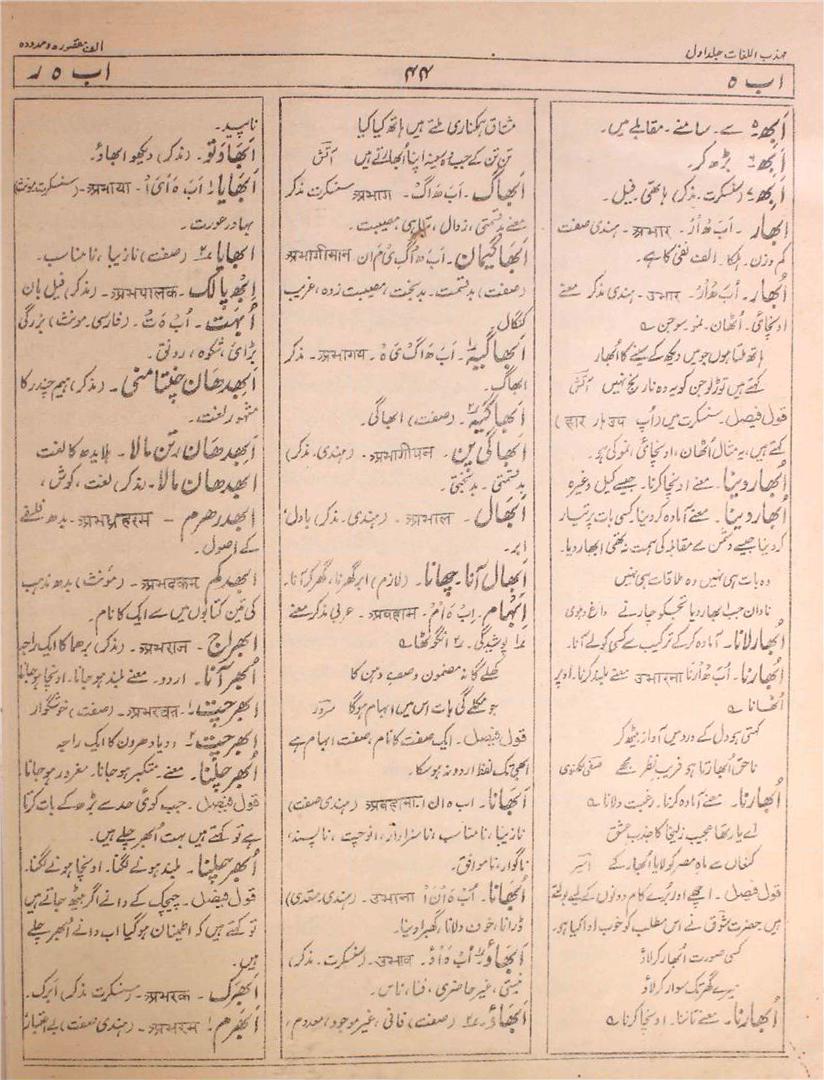 مہذب اللغات جلد اول
الف مقصورہ و ممدودہ
ا ب ہ
۴۴
ا ب ہ ر
اَبھ ۵ سے۔ سامنے۔ مقابلے میں۔
اَبھ ۶ بڑھ کر۔
اَبھ ۷ (سنسکرت۔ مذکر) ہاتھی، فیل۔
اَبھار۔ اَبَ ھ اَرْ۔ अभार۔ ہندی صفت
کم وزن۔ ہلکا۔ الف نفی کا ہے۔
اُبھار۔ اُبَ ھ اَرْ۔ उभार۔ ہندی مذکر معنے
اونچائی۔ اُٹھان۔ نمو۔ سوجن ؎
ہاتھ ملتا ہوں جو میں دیکھ کے سینے کا اُبھار
کہتے ہیں توڑ لو جن کو یہ وہ نارنج نہیں آتش
قول فیصل۔ سنسکرت میں (اُپ ہار उप हार)
کہتے ہیں، یہ مثال اُٹھان، اونچائی، نمو کی ہے۔
اُبھار دینا۔ معنے اونچا کرنا۔ جیسے کیل وغیرہ
اُبھار دینا۔ معنے آمادہ کر دینا کسی بات پر تیار
کر دینا جیسے دشمن سے مقابلہ کی ہمت نہ تھی ابھار دیا۔
وہ بات ہی نہیں وہ ملاقات ہی نہیں
ناداں جب ابھار دیا تجھکو چار نے داغ دہلوی
اُبھار لانا۔ آمادہ کر کے ترکیب سے کسی کو لے آنا۔
اُبھارنا۔ اُبَ ھ اَرْنا उभारना معنے بلند کرنا۔ اوپر
اُٹھانا ؎
کہتی ہو دل کے درد میں آواز بیٹھ کر
ناحق اُبھارتا ہو فریب نظر مجھے صفی لکھنوی
اُبھارنا۔ معنے آمادہ کرنا۔ رغبت دلانا ؎
اے یار تھا عجیب زلیخا کا جذب عشق
کنعاں سے ماہِ مصر کو لایا اُبھار کے اسیر
قول فیصل۔ اچھے اور بُرے کام دونوں کے لیے بولتے
ہیں حضرت شوق نے اس مطلب کو خوب ادا کیا ہو۔
کسی صورت اُبھار کر لاؤ
میرے گھر تک سوار کر لاؤ
اُبھارنا۔ معنے تاننا۔ اونچا کرنا ؎
مشاق ہمکناری ملتے ہیں ہاتھ کیا کیا
تن تن کے جب وہ سینہ اپنا اُبھارتے ہیں آتش
اَبھاگ۔ اَبَ ھ اَگْ۔ अभाग۔ سنسکرت مذکر
معنے بدقسمتی، زوال، تباہی، مصیبت۔
اَبھاگیمان۔ اَبَ ھ اَگِ یْ مَ ان अभागीमान
(صفت) بدقسمت۔ بدبخت، مصیبت زدہ، غریب
کنگال
اَبھاگیہ ۱۔ اَبَ ھ اَگ یَ ہ۔ अभागय۔ مذکر
ابھاگ۔
اَبھاگیہ ۲۔ (صفت) ابھاگی۔
اَبھاگی پن۔ अभागीपन۔ (ہندی۔ مذکر)
بدقسمتی۔ بدبختی۔
اَبھال۔ अभाल۔ (ہندی۔ مذکر) بادل،
ابر۔
اَبھال آنا۔ چھانا۔ (لازم) ابر گھرنا، گھر کر آنا۔
اِبْہام۔ اِبْ ہَ امْ۔ अबहाम۔ عربی مذکر معنے
۱ پوشیدگی۔ ۲ انگوٹھا ؎
کھلے گا نہ مضمون وصف دہن کا
جو نکلے گی بات اس میں ابہام ہوگا سرور
قول فیصل۔ ایک صفت کا نام، صفت ابہام ہے
ابھی تک لفظ اردو نہ ہو سکا۔
اَبھانا۔ اب ھ ان ا۔ अबहाना۔ (ہندی صفت)
نازیبا، نامناسب، ناسزاوار، انوچت، ناپسند،
ناگوار، ناموافق۔
اُبھانا۔ اُبْ ھَ انْ اْ उभाना۔ (ہندی متعدی)
ڈرانا، خوف دلانا، گھبرا دینا۔
اَبھاؤ ۱۔ اَبْ ھَ اْ ؤْ۔ उभाव۔ (سنسکرت۔ مذکر)
نیستی، غیر حاضری، فنا، ناس۔
اَبھاؤ ۲۔ (صفت) فانی، غیر موجود، معدوم،
ناپید۔
اَبھاؤتو۔ (مذکر) دیکھو ابھاؤ۔
اَبھایا ۱۔ اَبَ ھ اَیَ اْ۔ अभाया۔ (سنسکرت مونث)
بہادر عورت۔
ابھایا ۲۔ (صفت) نازیبا، نامناسب۔
اِبھ پالک۔ अभपालक۔ (مذکر) فیل بان
اُبہت۔ اُبْ ہَ تْ۔ (فارسی۔ مونث) بزرگی
بڑائی، شکوہ، رونق۔
اَبھدھان چنتا منی۔ (مذکر) ہیم چندر کا
مشہور لغت۔
اَبھدھان رتن مالا۔ ہلایدھ کا لغت
ابھدھان مالا۔ (مذکر) لغت، کوش،
ابھدر دھرم۔ अभध्रहरम۔ بدھ فلسفے
کے اصول۔
ابھدکم अभदकन (مونث) بدھ مذہب
کی تین کتابوں میں سے ایک کا نام۔
ابھراج۔ अभराज۔ (مذکر) برھما کا ایک راجہ
اُبھر آنا۔ اردو۔ معنے بلند ہو جانا۔ اونچا ہو جانا
ابھرچپت ۱۔ अभरवत۔ (صفت) خوشگوار
ابھرچپت ۲۔ ودیا دھروں کا ایک راجہ
اُبھر چلنا۔ معنے۔ متکبر ہو جانا۔ مغرور ہو جانا
قول فیصل۔ جب کوئی حد سے بڑھ کے بات کرتا
ہے تو کہتے ہیں بہت اُبھر چلے ہیں۔
اُبھر چلنا۔ بلند ہونے لگنا۔ اونچا ہونے لگنا۔
قول فیصل۔ چیچک کے دانے اگر بیٹھ جاتے ہیں
تو کہتے ہیں کہ اطمینان ہو گیا اب دانے اُبھر چلے
ہیں۔
اَبھرک۔ अभरक۔ (سنسکرت مذکر) ابرک۔
اَبھرم ۱ अभरम۔ (ہندی صفت) بے اعتبار